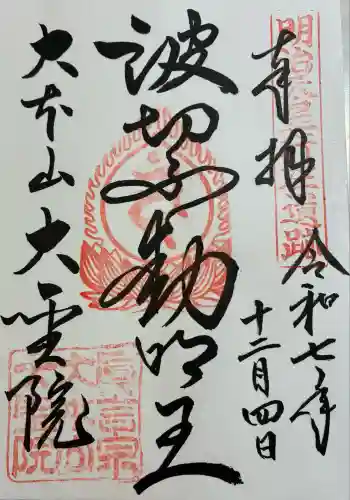 奉拝
令和七年
十二月四日
波切不動明王
大本山大聖院
真言宗
大本山
大聖院